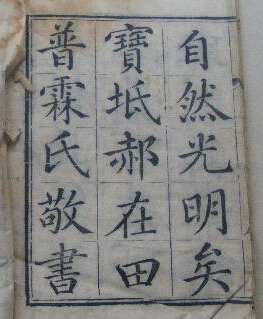 自然光明矣
寶坻郝在田
普霖氏敬書